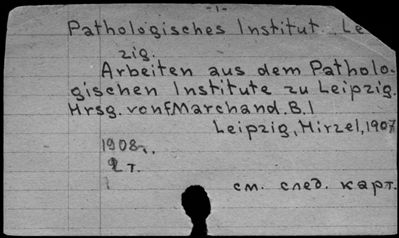 -1-
Pathologisches Institut. Le
zig.
Arbeiten aus dem Patholo-
gischen Institute zu Leipzig.
Hrsg. von F. Marchand. B. 1
Leipzig, Hirzel, 1907
1908г.
2 т.
см. след. карт.